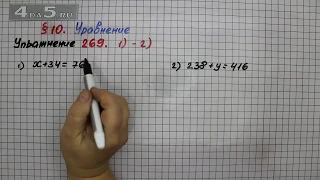 4DS.RU
§10. Уравнение
Упражнение 269. 1) - 2)
1) x+34=76
2) 238+y=416